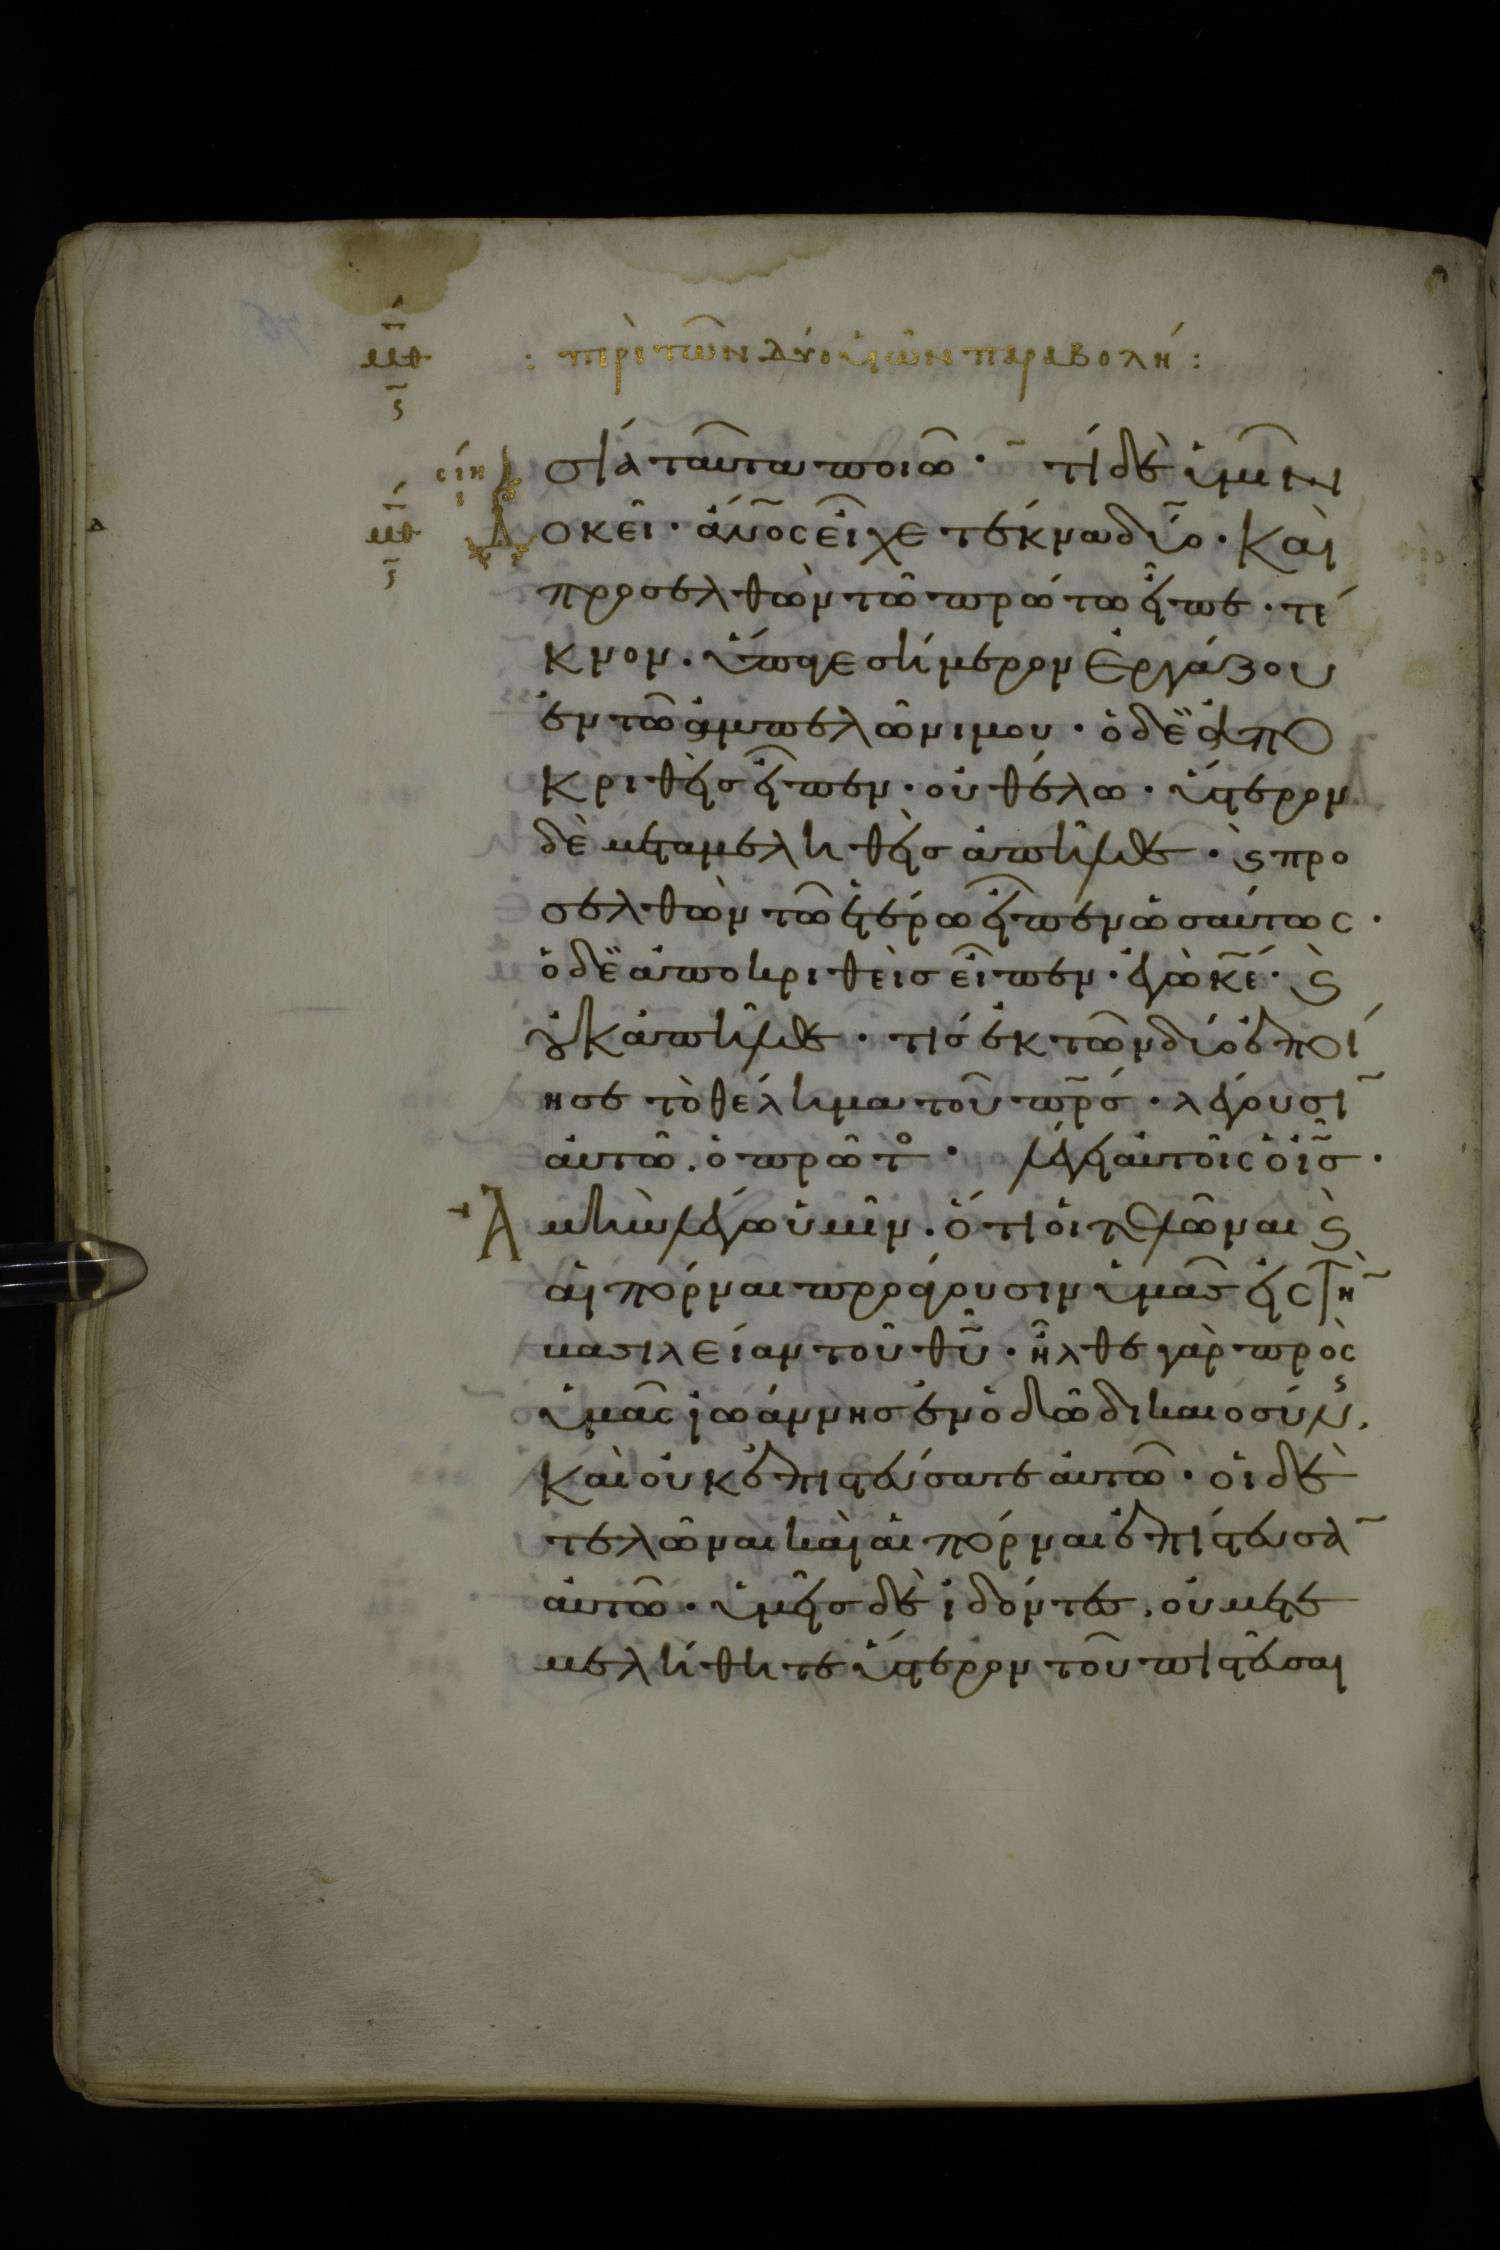 : περὶ τῶν δύο υἱῶν παραβολή :
σία ταῦτα ποιῶ · τί δὲ ὑμῖν
δοκεῖ · ἄν̅ο̅ς εἶχε τέκνα δύο · Καὶ
προσελθὼν τῶ πρώτω εἶπε · τέ
κνον · ὕπαγε σήμερον ἐργάζου
ἐν τῶ ἀμπελῶνι μου · ὁ δὲ ἀπο
κριθεὶς εἶπεν · οὐ θέλω · ὕστερον
δὲ μεταμεληθεὶς ἀπῆλθε · ϛ προ
σελθὼν τῶ ἑτέρω εἶπεν ὡσαύτως ·
ὁ δὲ ἀποκριθεὶς εἶπεν · ἐγὼ κ̅ε̅ · ϛ
οὐκ ἀπῆλθε · τίς ἐκ τῶν δύο ἐποί
ησε τὸ θέλημα τοῦ π̅ρ̅ς · λέγουσῖ
αὐτῶ · ὁ πρῶτο · λέγει αὐτοῖς ὁ ι̅ς̅ ·
Ἀμὴν λέγω ὑμῖν · ὅτι οἱ τελῶναι ϛ
αἱ πόρναι προάγουσιν ὑμᾶς εἰς τὴ̅
βασιλείαν τοῦ θ̅υ̅ · ἦλθε γὰρ πρὸς
ὑμᾶς ἰωάννης ἐν ὁδῶ δικαιοσύν,
Καὶ οὐκ ἐπιστεύσατε αὐτῶ · οἱ δὲ
τελῶναι καὶ αἱ πόρναι ἐπίστευσα̅
αὐτῶ · ὑμεῖς δὲ ἰδόντες, οὐ μετε
μελήθητε ὕστερον τοῦ πιστεῦσαι